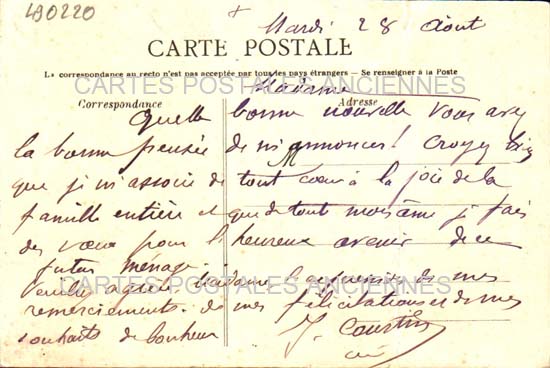 490220
+ Mardi 28 Août
CARTE POSTALE
La correspondance au recto n'est pas acceptée par tous les pays étrangers — Se renseigner à la Poste
CARTES POSTALES ANCIENNES
Madame
Correspondance Adresse
Quelle bonne nouvelle vous avez
la bonne pensée de m'annoncer! Croyez bien
M
que je m'associe de tout cœur à la joie de la
famille entière et que de tout mon âme je fais
des vœux pour l'heureux avenir de ce
futur ménage.
CARTES POSTALES ANCIENNES
Veuillez agréer Madame l'expression de mes
remerciements, de mes félicitations et de mes
souhaits de bonheur
J. Courtin